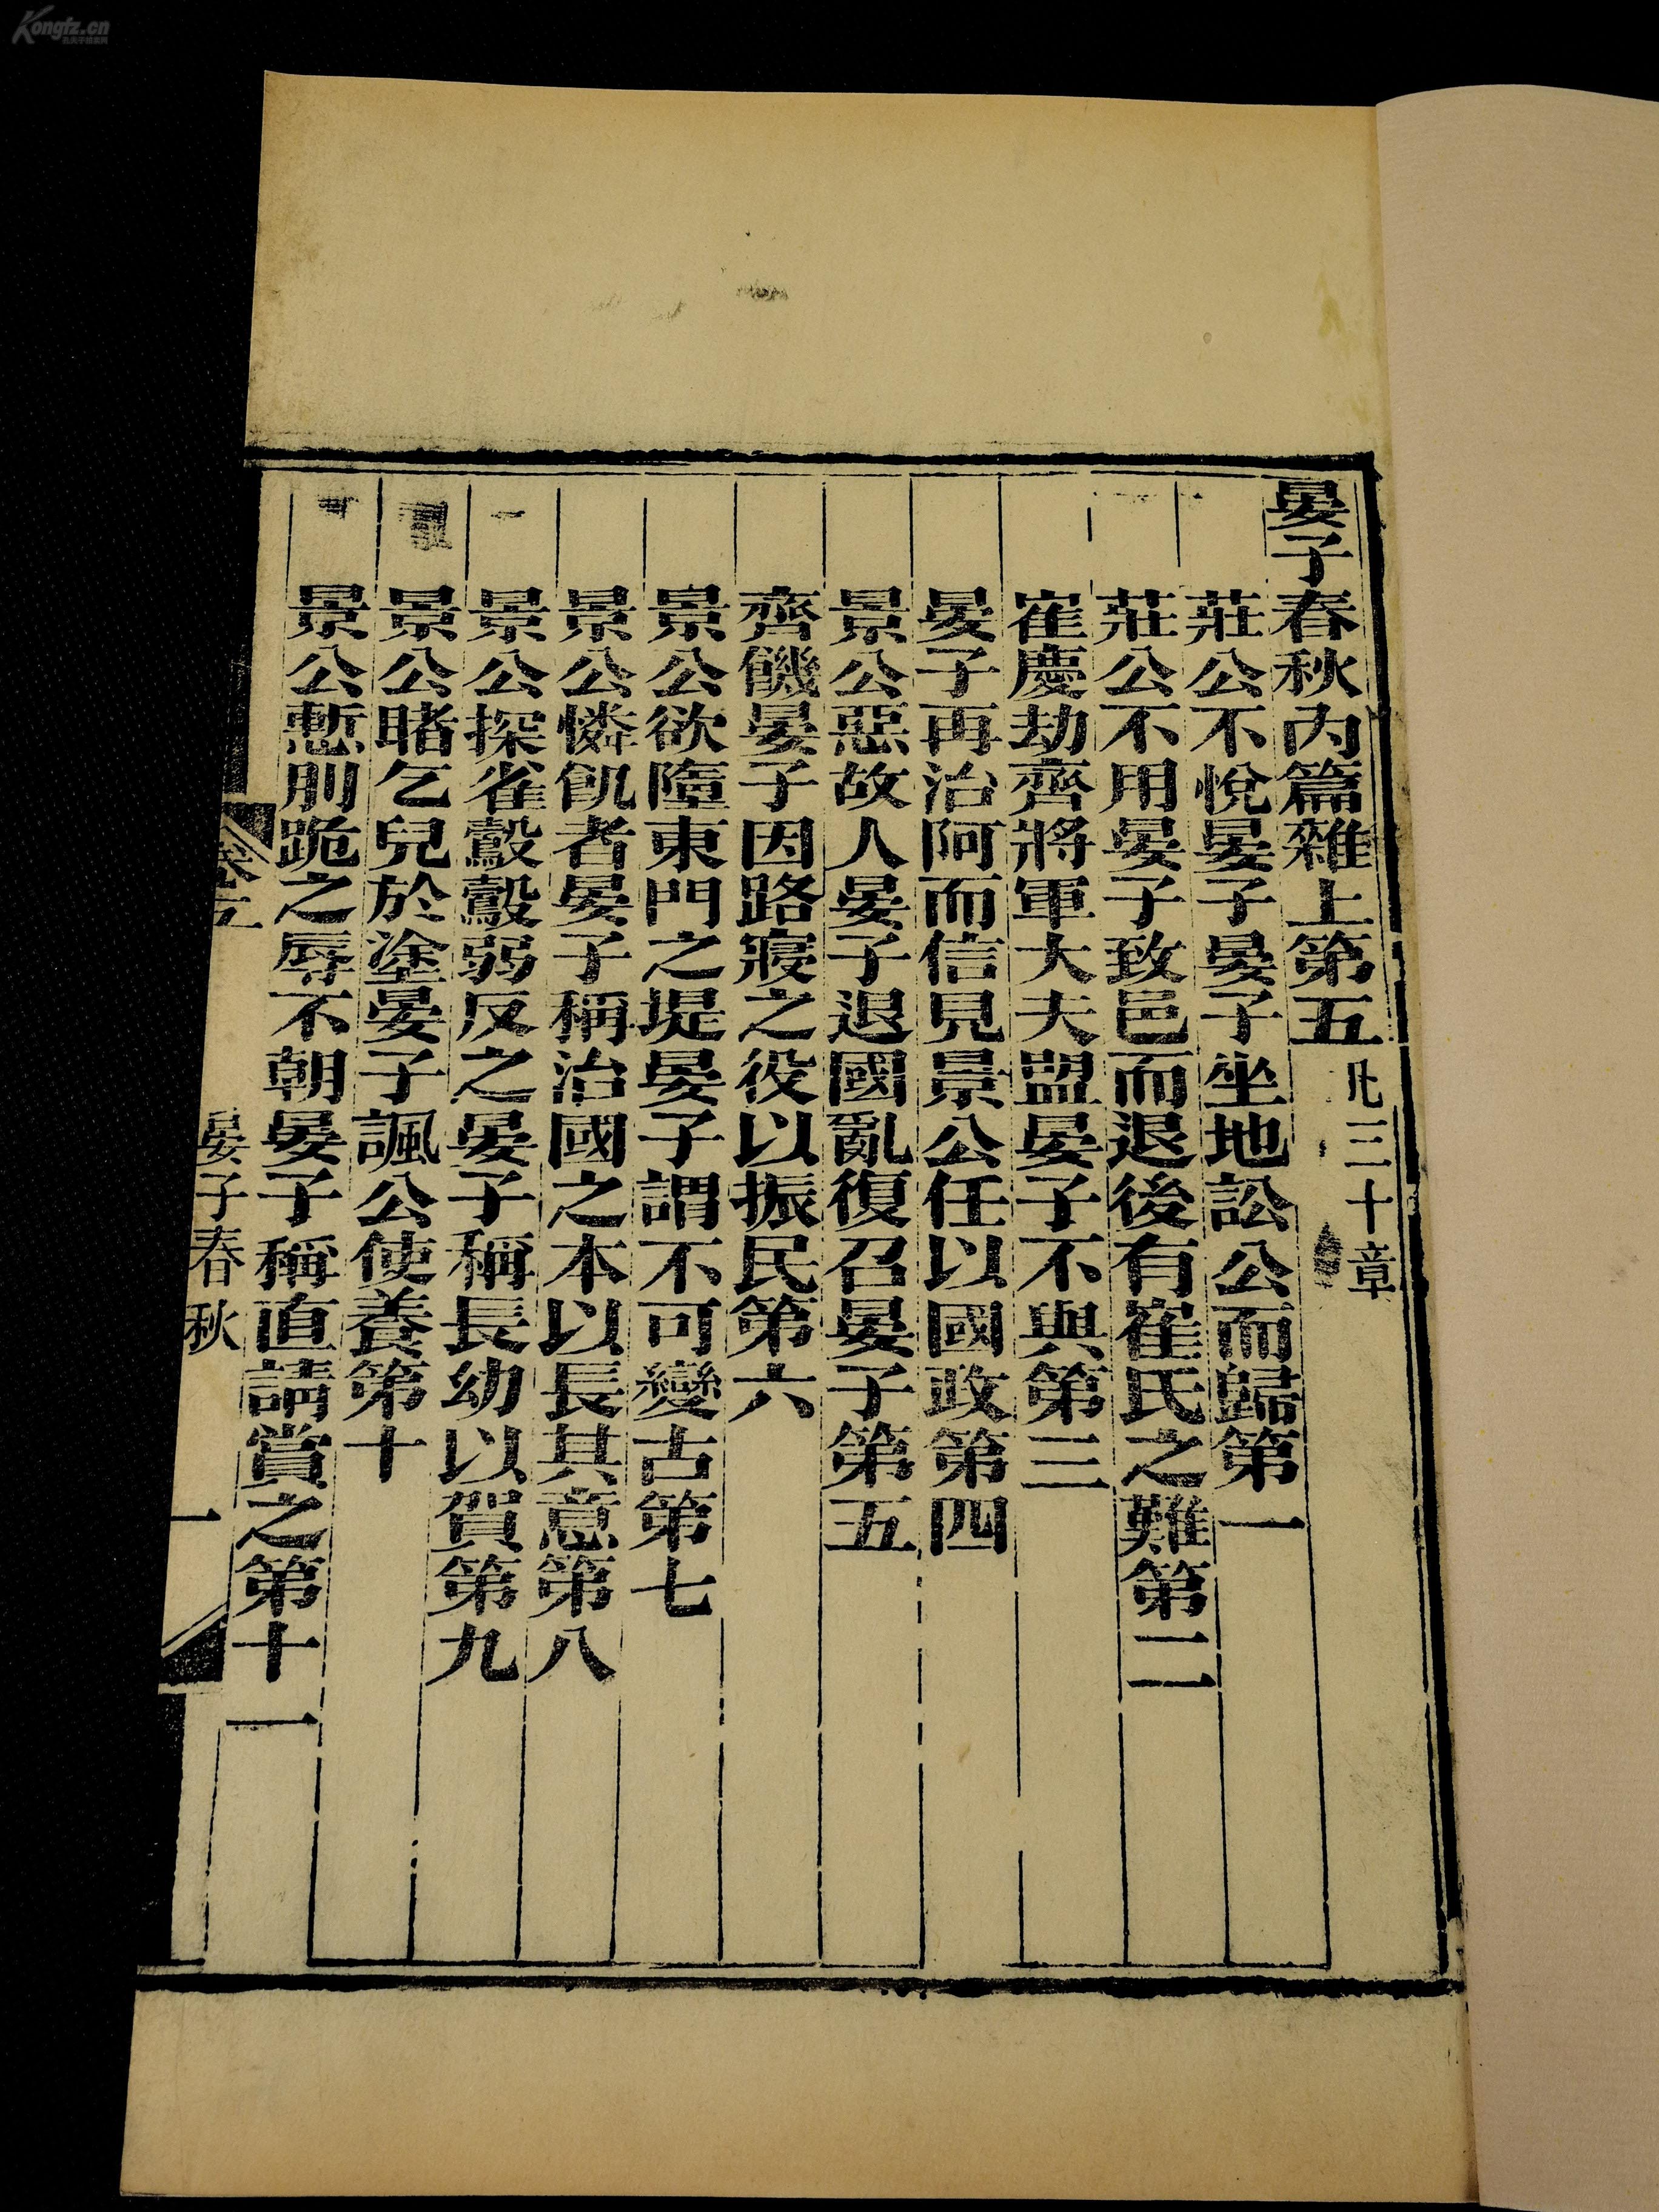 晏子春秋內篇雜上第五 凡三十章
莊公不悅晏子晏子坐地訟公而歸第一
莊公不用晏子致邑而退後有崔氏之難第二
崔慶劫齊將軍大夫盟晏子不與第三
晏子再治阿而信見景公任以國政第四
景公惡故人晏子退國亂復召晏子第五
齊饑晏子因路寢之役以振民第六
景公欲墮東門之堤晏子謂不可變古第七
景公憐飢者晏子稱治國之本以長其意第八
景公探雀鷇鷇弱反之晏子稱長幼以賀第九
景公睹乞兒於塗晏子諷公使養第十
景公慙刖跪之辱不朝晏子稱直請賞之第十一
卷五
晏子春秋
一
Kongfz.cn